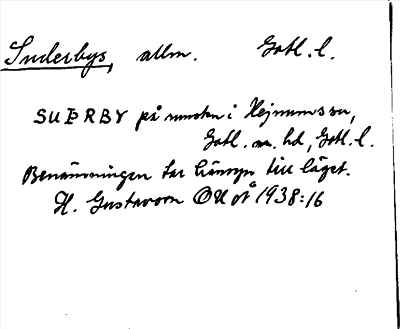 Suderbys, allm. Gotl. l.
SUÞRBY på runsten i Hejnums sn,
Gotl. n. hd, Gotl. l.
Benämningen tar hänsyn till läget.
H. Gustavson OUoÅ 1938:16